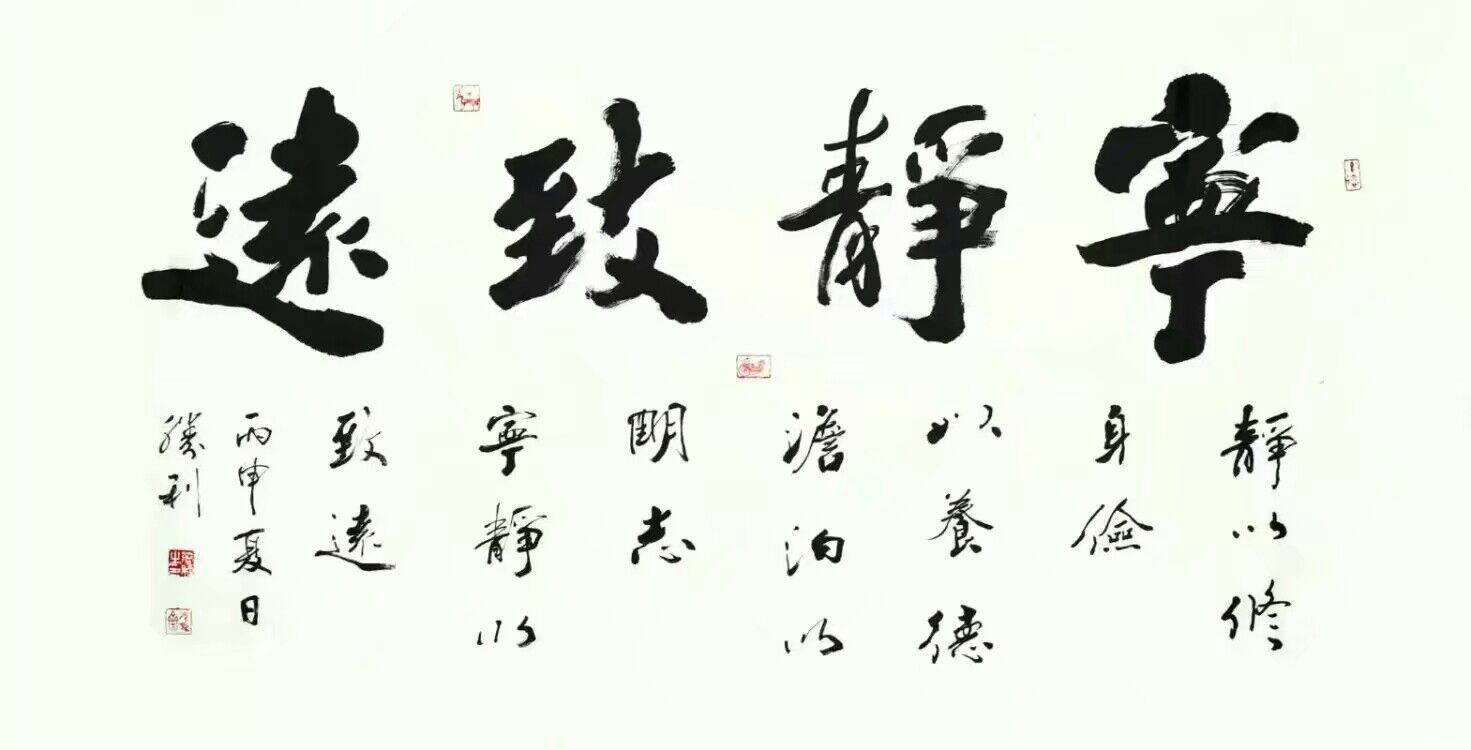 寧靜致遠
靜以修
身儉
以養德
澹泊以
明志
寧靜以
致遠
丙申夏日
勝利